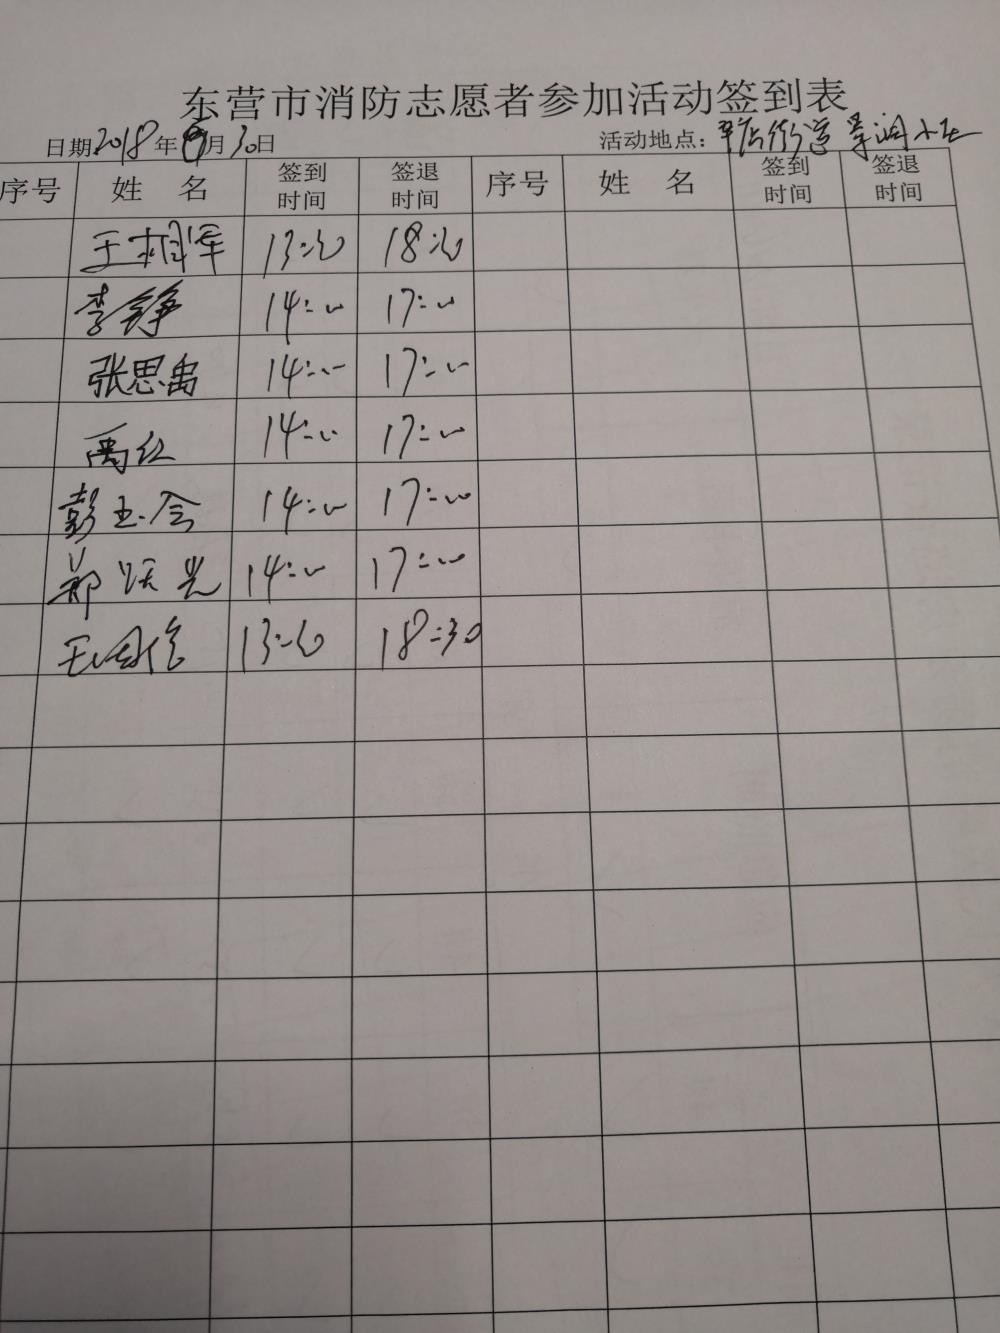 东营市消防志愿者参加活动签到表
日期2018年 月30日 活动地点: 街道 小区
序号 姓名 签到时间 签退时间 序号 姓名 签到时间 签退时间
王相军 13:30 18:30
李铮 14:00 17:00
张思禹 14:00 17:00
禹红 14:00 17:00
彭玉会 14:00 17:00
郑跃光 14:00 17:00
王国信 13:30 18:30